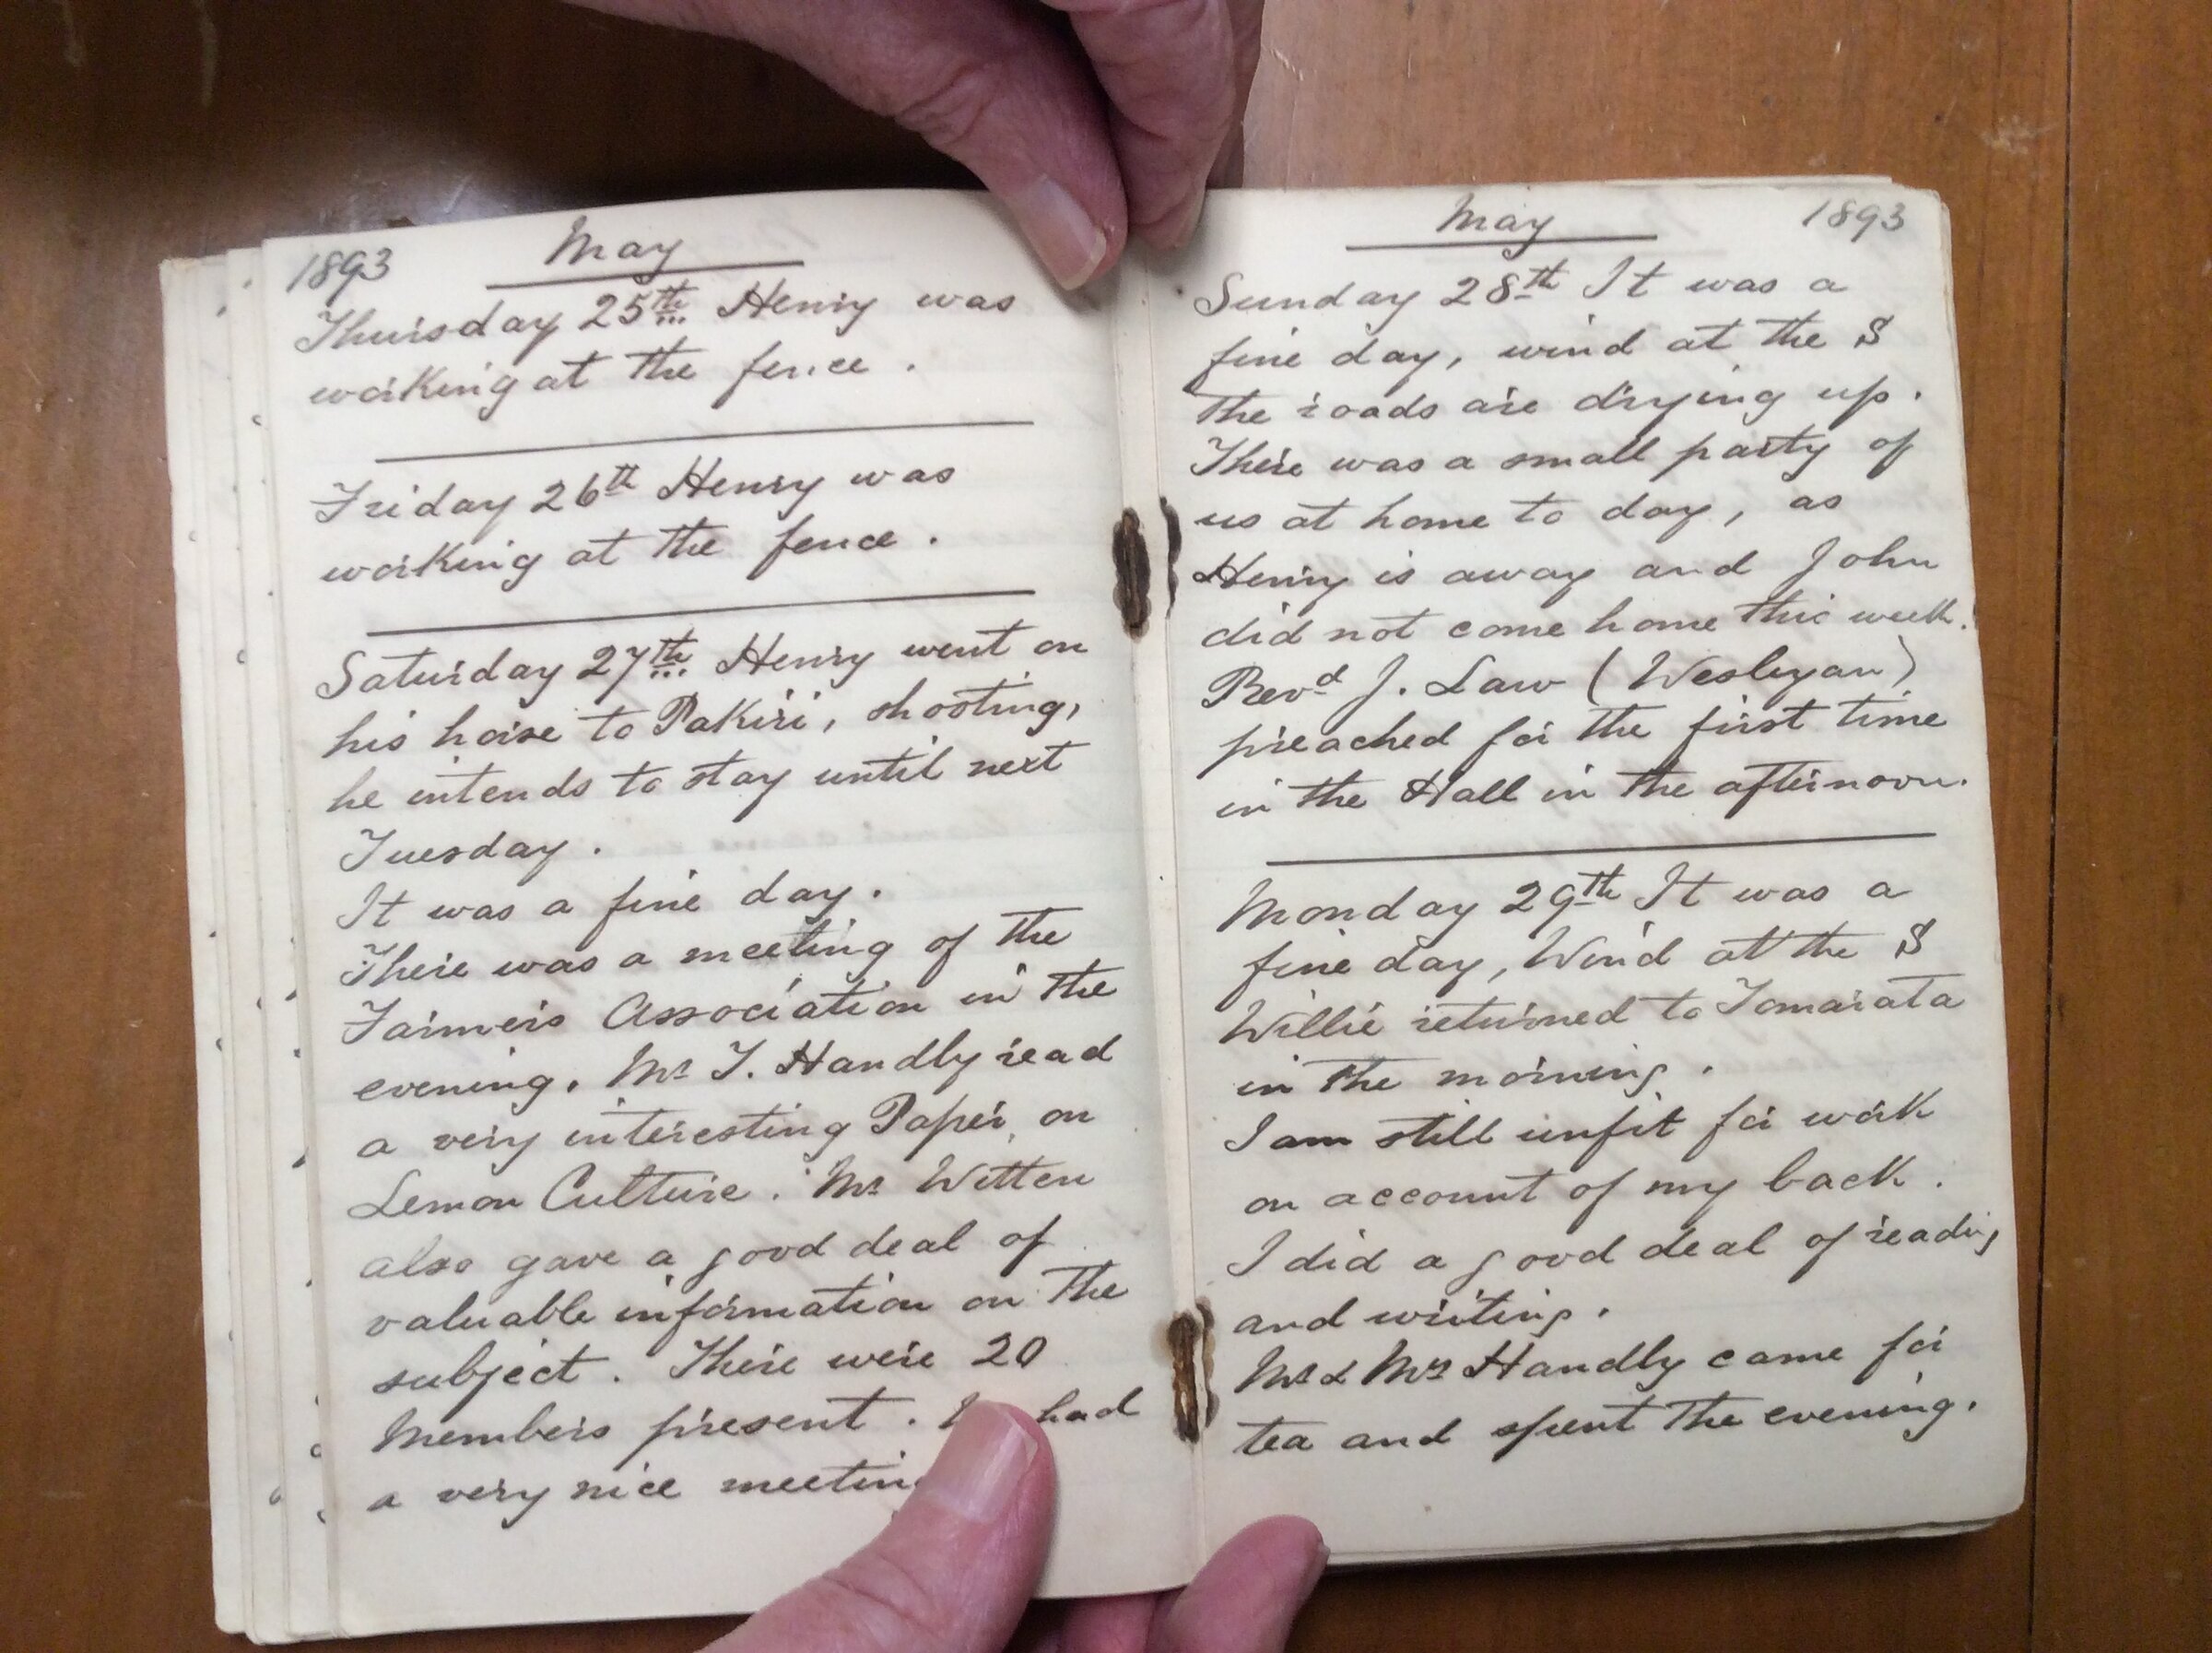 1893 May
Thursday 25th Henry was
working at the fence.
Friday 26th Henry was
working at the fence.
Saturday 27th Henry went on
his horse to Pakiri, shooting,
he intends to stay until next
Tuesday.
It was a fine day.
There was a meeting of the
Farmers Association in the
evening. Mr T. Handly read
a very interesting Paper, on
Lemon Culture. Mr Witten
also gave a good deal of
valuable information on the
subject. There were 20
Members present. had
a very nice meeting
May 1893
Sunday 28th It was a
fine day, wind at the S
The roads are drying up.
There was a small party of
us at home to day, as
Henry is away and John
did not come home this week.
Revd J. Law (Wesleyan)
preached for the first time
in the Hall in the afternoon.
Monday 29th It was a
fine day, Wind at the S
Willie returned to Tomarata
in the morning.
I am still unfit for work
on account of my back.
I did a good deal of reading
and writing.
Mr & Mrs Handly came for
tea and spent the evening.